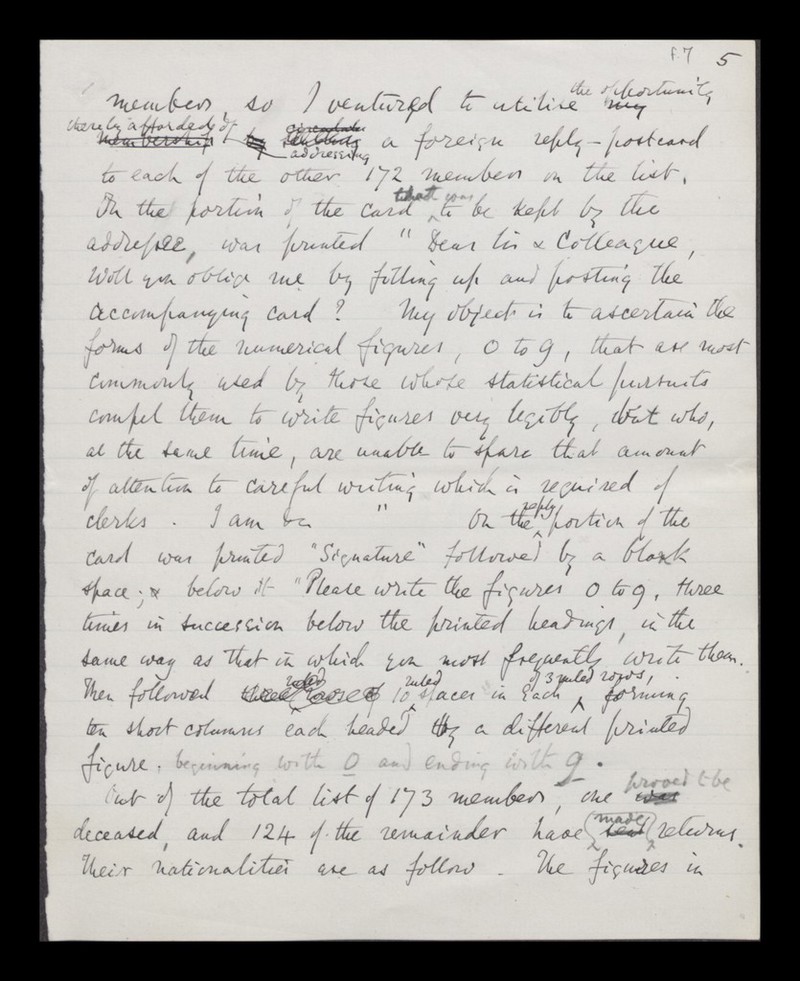 f.7 5
the opportunity
members, so I ventured to utilise my
thereby afforded, of circulate
membership by sending a foreign reply-postcard
addressing
to each of the other 172 members on the list.
that was
On the portion of the card to be kept by the
addressee, was printed "Dear Sir & Colleague,
Will you oblige me by filling up and posting the
accompanying card? My object is to ascertain the
forms of the numerical figures, 0 to 9, that are most
commonly used by those whose statistical pursuits
compel them to write figures very legibly, but who,
at the same time, are unable to spare that amount
of attention to careful writing which is required of
reply
clerks. I am &c " On the portion of the
card was printed "Signature" followed by a blank
space; & below it "Please write the figures 0 to 9, three
times in succession below the printed headings, in the
same way as that in which you most frequently write them.
ruled ruled of 3 ruled rows,
Then followed three rows of 10 spaces in each forming
ten short columns each headed by a different printed
figure, beginning with 0 and ending with 9.
proved to be
Out of the total list of 173 members, one was
made
deceased, and 124 of the remainder have sent returns.
Their nationalities are as follow. The figures in